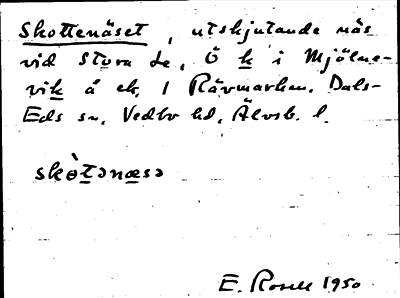 Skottenäset, utskjutande näs
vid Stora Le, Ö k i Mjölne-
vik å ek. 1 Rävmarken. Dals-
Eds sn. Vedbo hd, Älvsb. l.
skòtənæsə
E. Rosell 1950